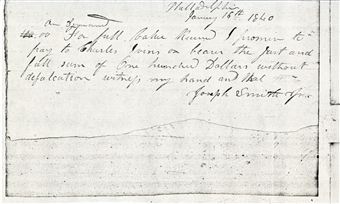 Philladelphia
January 16th 1840
On Demand
.00 For full value Recived I promise to
pay to Charles Joins on bearer the Just and
full sum of One hundred Dollars without
defalcation witness my hand and
Joseph Smith Jr.